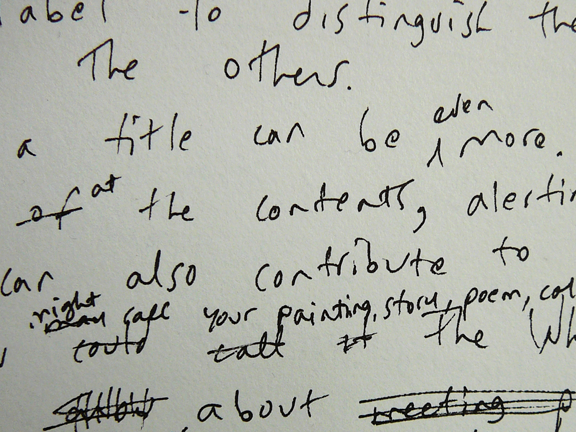 label to distinguish the
The others.
a title can be even more.
of at the contents, alertin
can also contribute to
right call your painting, story, poem, cal
could call it the Wh
about meeting p